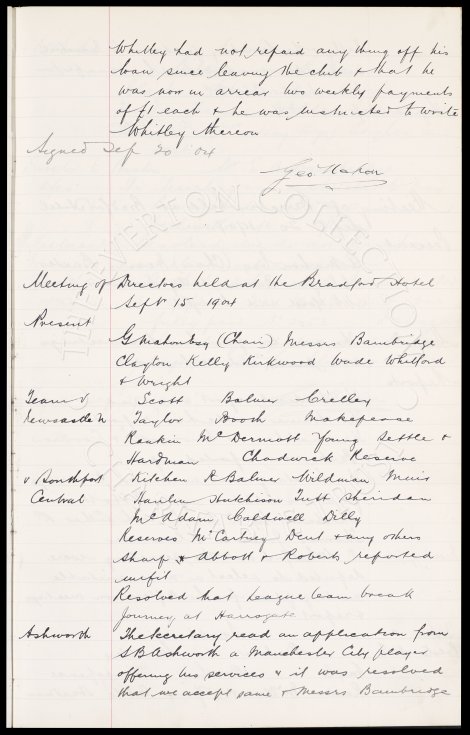 Whitley had not repaid any thing off his
loan since leaving the club & that he
was now in arrear two weekly payments
of £1 each & he was instructed to write
Whitley thereon
Signed Sep 20 '04
Geo Mahon
THE EVERTON COLLECTION
Meeting of Directors held at the Bradford Hotel
Sept 15 1904
Present
G Mahon Esq (Chair) Messrs Bainbridge
Clayton Kelly Kirkwood Wade Whitford
& Wright
Team v Scott Balmer Crelley
Newcastle U Taylor Booth Makepeace
Rankin McDermott Young Settle &
Hardman Chadwick Reserve
v Southport Kitchen R Balmer Wildman Muir
Central Hutchison Tutt Sheridan
McAdam Caldwell Dilly
Reserves McCartney Dent & any others
Sharp & Abbott & Roberts reported
unfit
Resolved that League team break
journey at Harrogate
Ashworth The Secretary read an application from
S B Ashworth a Manchester City player
offering his services & it was resolved
that we accept same & Messrs Bainbridge